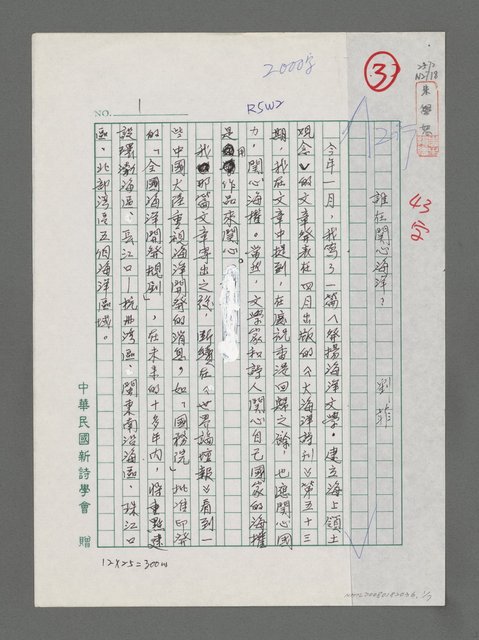 2000字
③
RSW2
NO. 1
43字
誰在關心海洋？
今年一月，我寫了一篇《發揚海洋文學‧建立海上領土
觀念》的文章發表在四月出版的《大海洋詩刊》第五十三
期，我在文章中提到，在慶祝香港回歸之餘，也應關心國
力，關心海權。當然，文學家和詩人關心自己國家的海權
是用作品來關心。
我那篇文章寫出之後，斷續在《世界論壇報》看到一
些中國大陸重視海洋開發的消息，如「國務院」批准印發
的「全國海洋開發規劃」，在未來的十多年內，將重點建
設環渤海區、長江口—杭州灣區、閩東南沿海區、珠江口
區、北部灣區五個海洋區域。
中華民國新詩學會 贈
12×25=300w